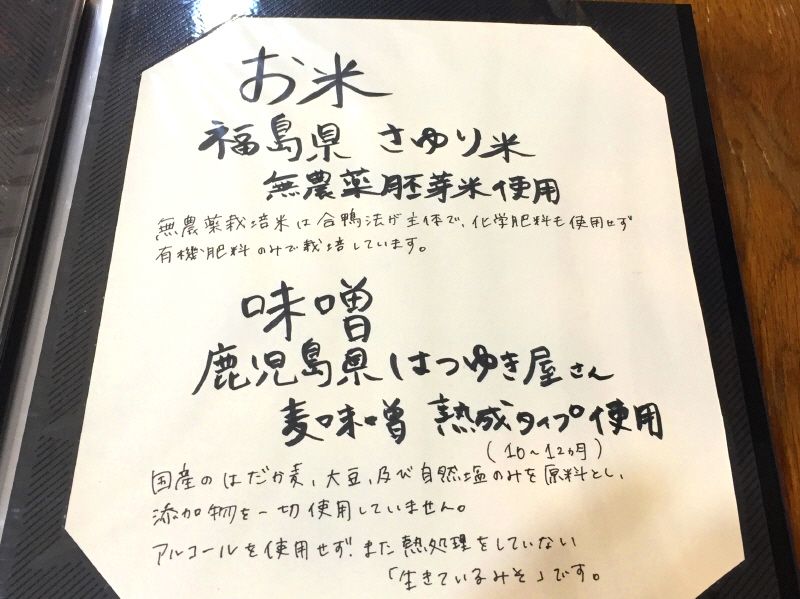 お米
福島県 さゆり米
無農薬胚芽米使用
無農薬栽培米は合鴨法が主体で、化学肥料も使用せず
有機肥料のみで栽培しています。
味噌
鹿児島県はつゆき屋さん
麦味噌 熟成タイプ使用
(10~12ヵ月)
国産のはだか麦、大豆、及び自然塩のみを原料とし、
添加物を一切使用していません。
アルコールを使用せず、また熱処理をしていない
「生きているみそ」です。